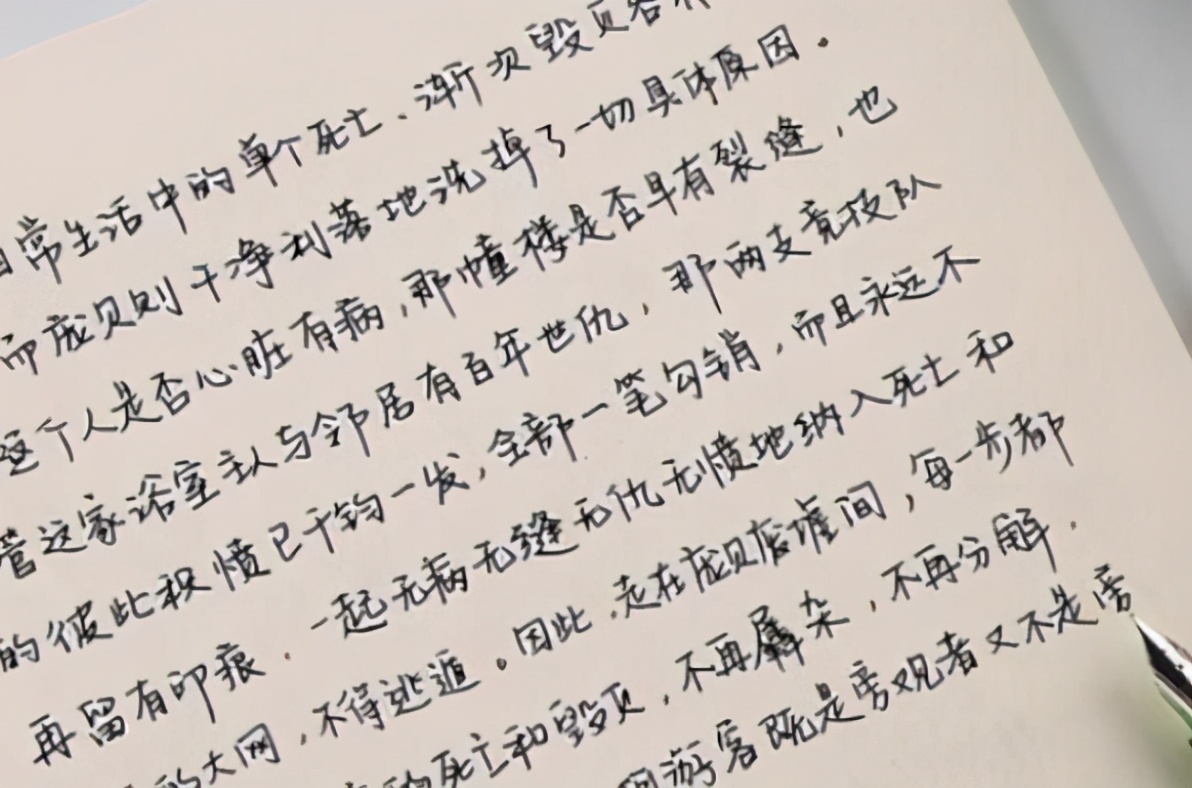 日常生活中的单个死亡、渐次毁灭各
而庞贝则干净利落地洗掉了一切具体原因。
这个人是否心脏有病，那幢楼是否早有裂缝，也
管这家浴室主人与邻居有百年世仇，那两支竞技队
的彼此积愤已千钧一发，全部一笔勾销，而且永远不
再留有印痕。一起无病无缝无仇无愤地纳入死亡和
的大网，不得逃遁。因此，走在庞贝废墟间，每一步都
的死亡和毁灭，不再羼杂，不再分解。
游客既是旁观者又不是旁